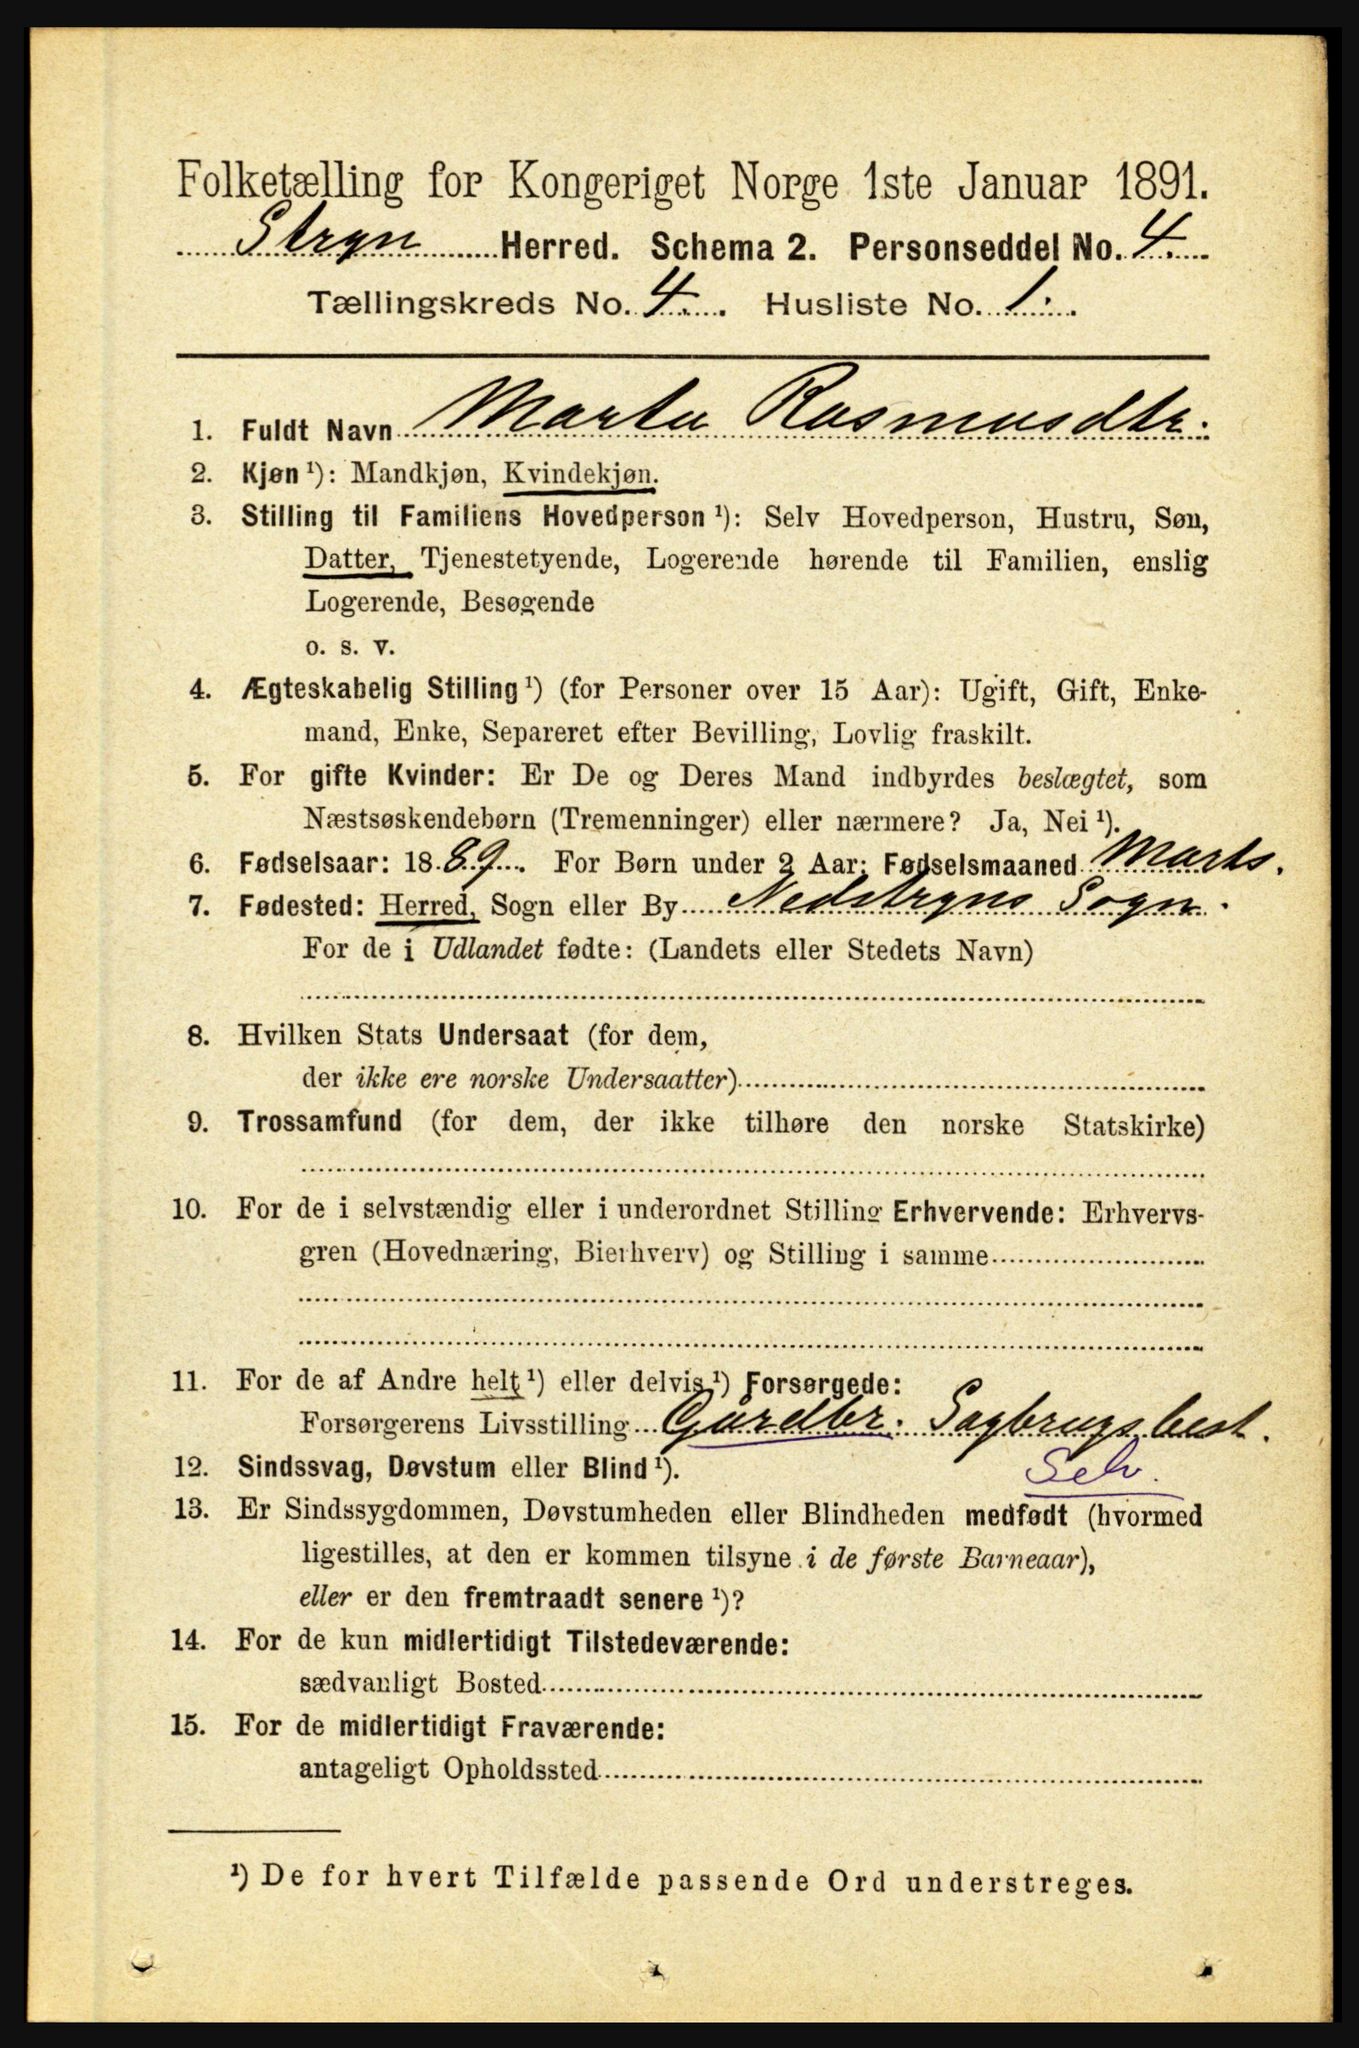 Folketælling for Kongeriget Norge 1ste Januar 1891.
Stryn Herred. Schema 2. Personseddel No. 4.
Tællingskreds No. 4. Husliste No. 1.
1. Fuldt Navn Marta Rasmusdtr.
2. Kjøn ¹): Mandkjøn, Kvindekjøn.
3. Stilling til Familiens Hovedperson ¹): Selv Hovedperson, Hustru, Søn,
Datter, Tjenestetyende, Logerende hørende til Familien, enslig
Logerende, Besøgende
o. s. v.
4. Ægteskabelig Stilling ¹) (for Personer over 15 Aar): Ugift, Gift, Enke-
mand, Enke, Separeret efter Bevilling, Lovlig fraskilt.
5. For gifte Kvinder: Er De og Deres Mand indbyrdes beslægtet, som
Næstsøskendebørn (Tremenninger) eller nærmere? Ja, Nei ¹).
6. Fødselsaar: 1889. For Børn under 2 Aar: Fødselsmaaned Marts.
7. Fødested: Herred, Sogn eller By Nedstryns Sogn.
For de i Udlandet fødte: (Landets eller Stedets Navn)
8. Hvilken Stats Undersaat (for dem,
der ikke ere norske Undersaatter)
9. Trossamfund (for dem, der ikke tilhøre den norske Statskirke)
10. For de i selvstændig eller i underordnet Stilling Erhvervende: Erhvervs-
gren (Hovednæring, Bierhverv) og Stilling i samme
11. For de af Andre helt ¹) eller delvis ¹) Forsørgede:
Forsørgerens Livsstilling Gårdbr. Sagbrugsbest.
12. Sindssvag, Døvstum eller Blind ¹). Selv.
13. Er Sindssygdommen, Døvstumheden eller Blindheden medfødt (hvormed
ligestilles, at den er kommen tilsyne i de første Barneaar),
eller er den fremtraadt senere ¹)?
14. For de kun midlertidigt Tilstedeværende:
sædvanligt Bosted
15. For de midlertidigt Fraværende:
antageligt Opholdssted
¹) De for hvert Tilfælde passende Ord understreges.